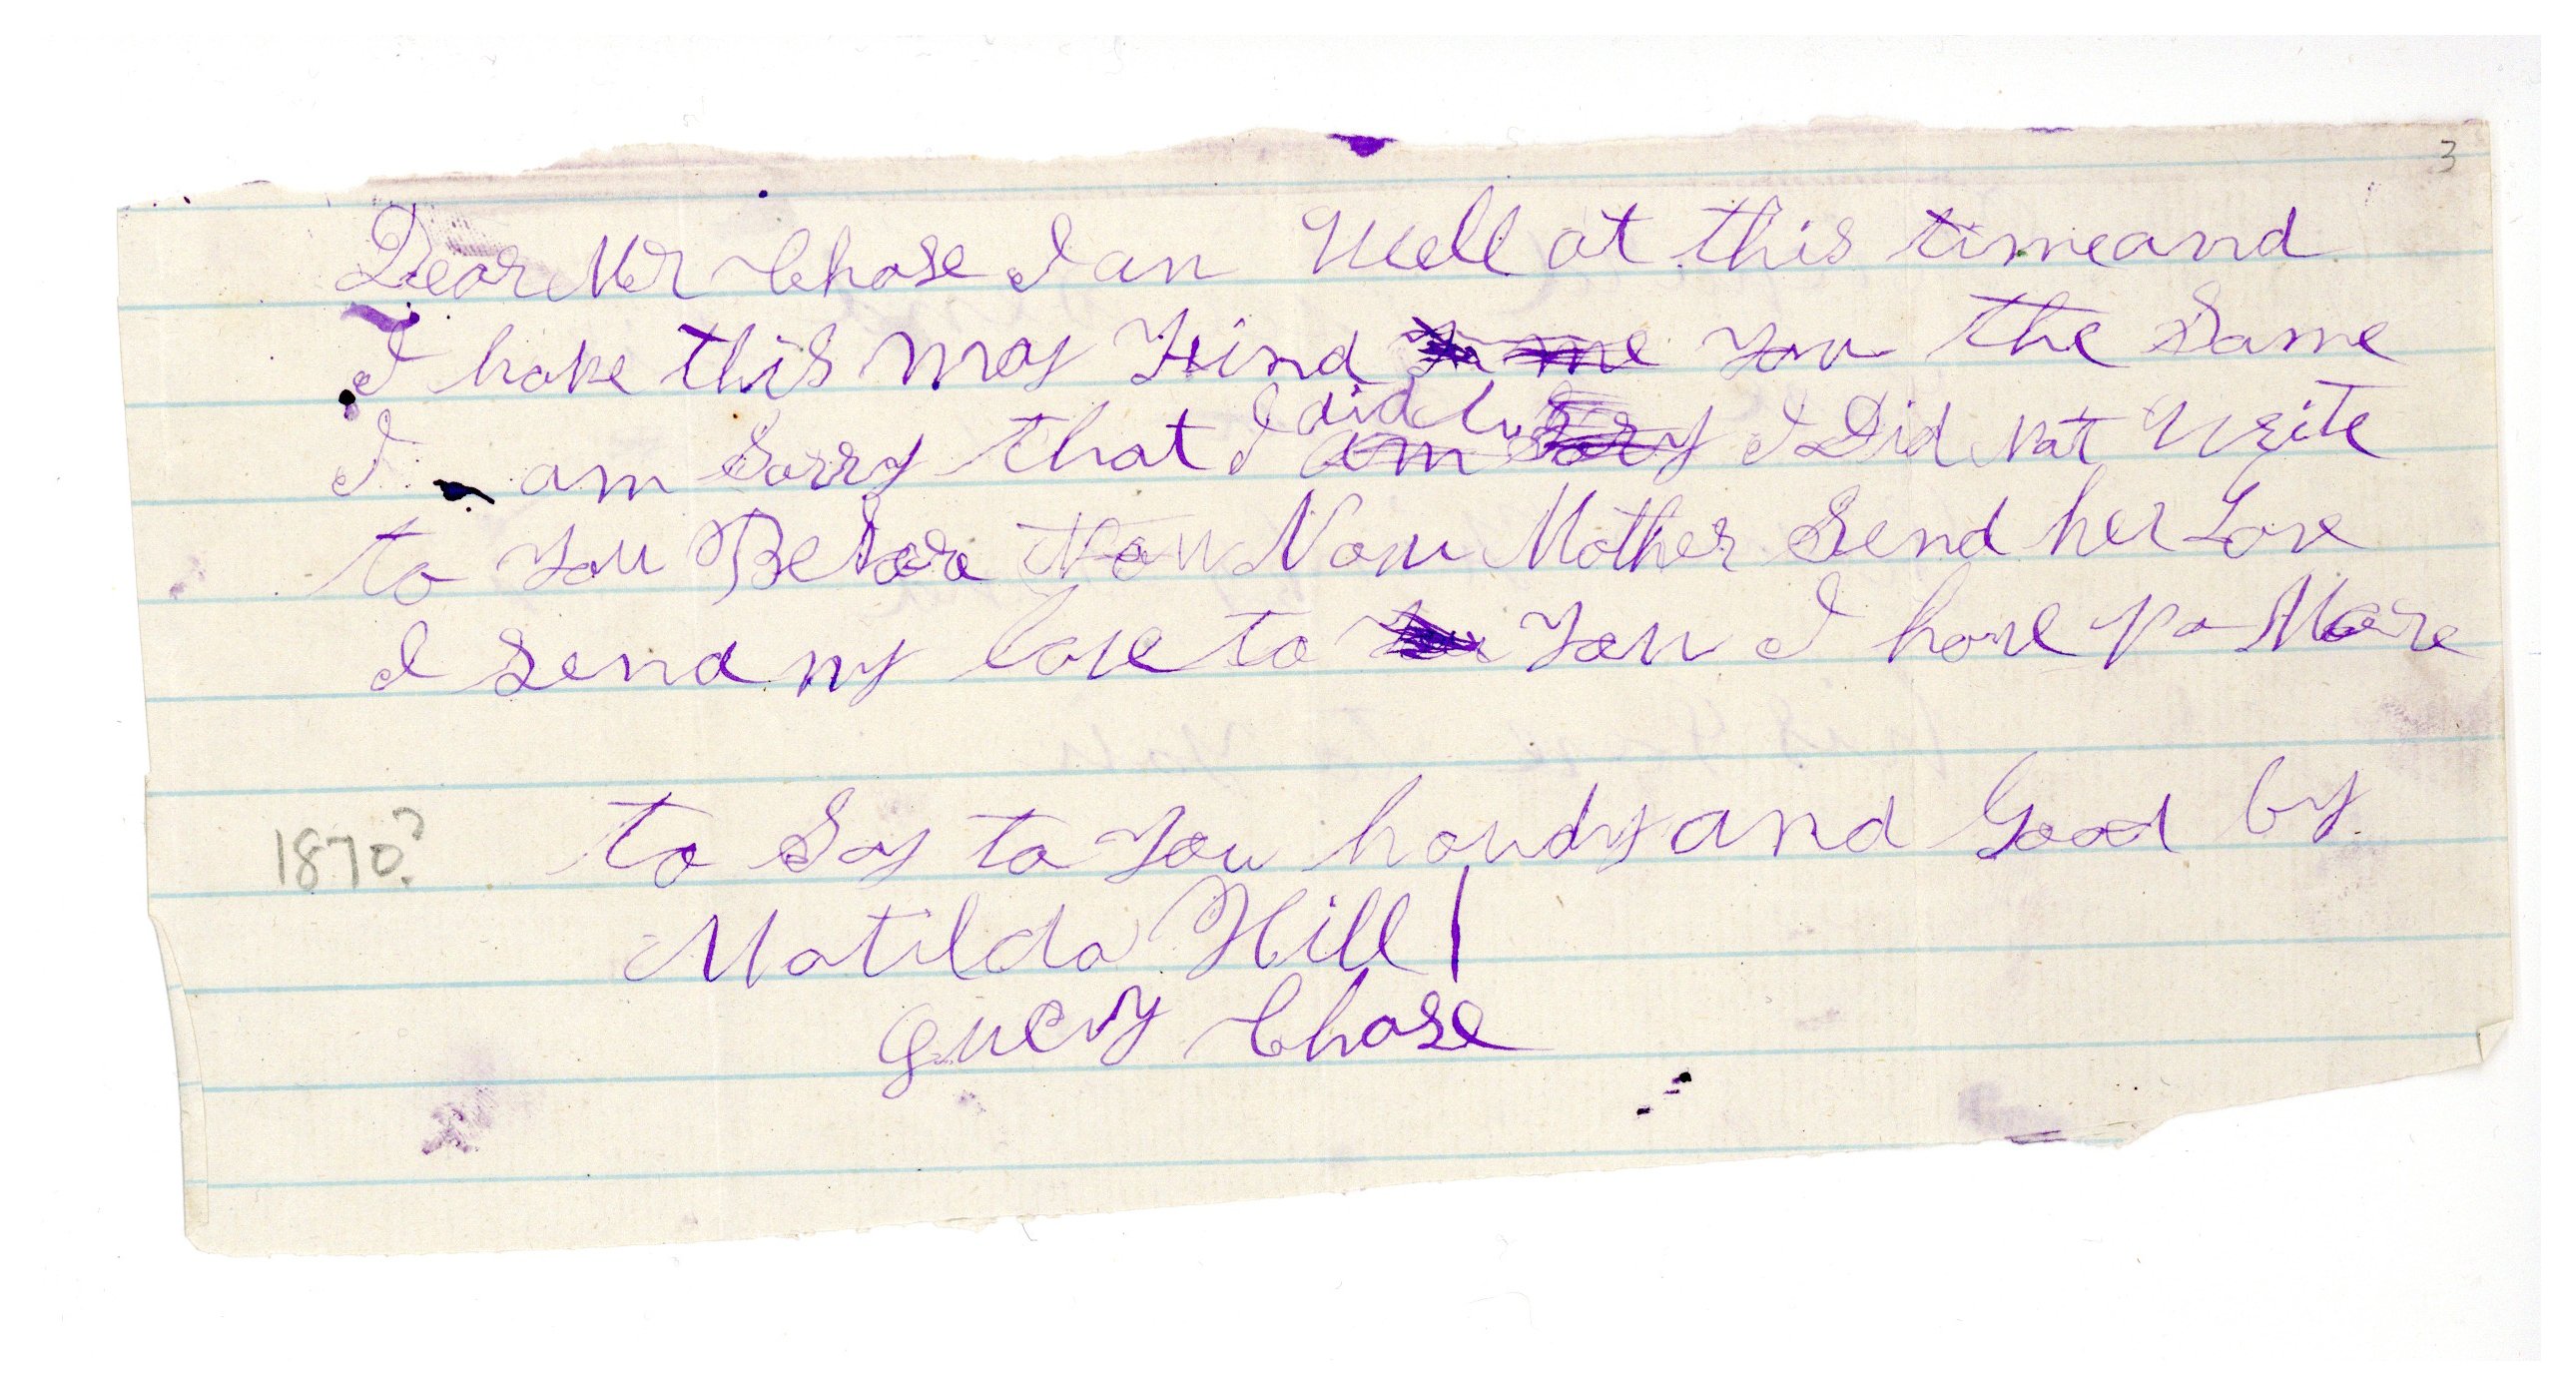 3
Dear Mr Chase I am Well at this time and
I hope this may Find you the Same
I am Sorry that I did I Did Not Write
to You Before Now Now Mother Send her Love
I Send my love to You I have No More
to Say to You howdy and Good by
1870?
Matilda Hill
Chase